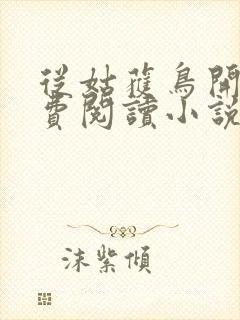 從姑蘿鳥開
費閱讀小說
沫紫傾